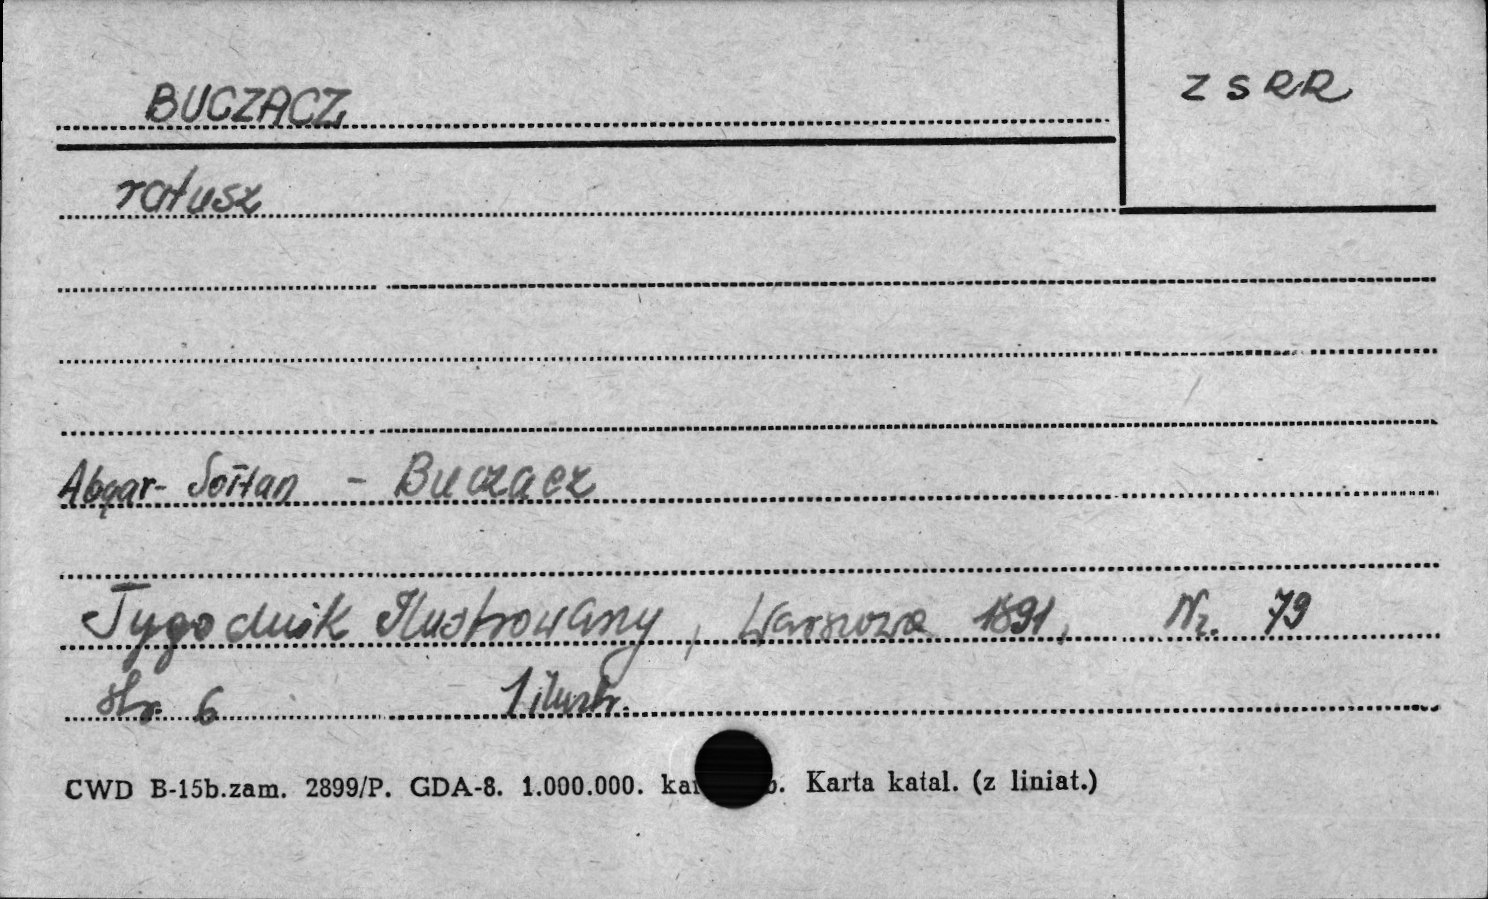 BUCZACZ
ZSRR
ratusz
Abgar-Sołtan - Buczacz
Tygodnik Ilustrowany, Warszawa 1891, Nr. 79
str. 6 1 ilustr.
CWD B-15b.zam. 2899/P. GDA-8. 1.000.000. Karta katal. (z liniat.)